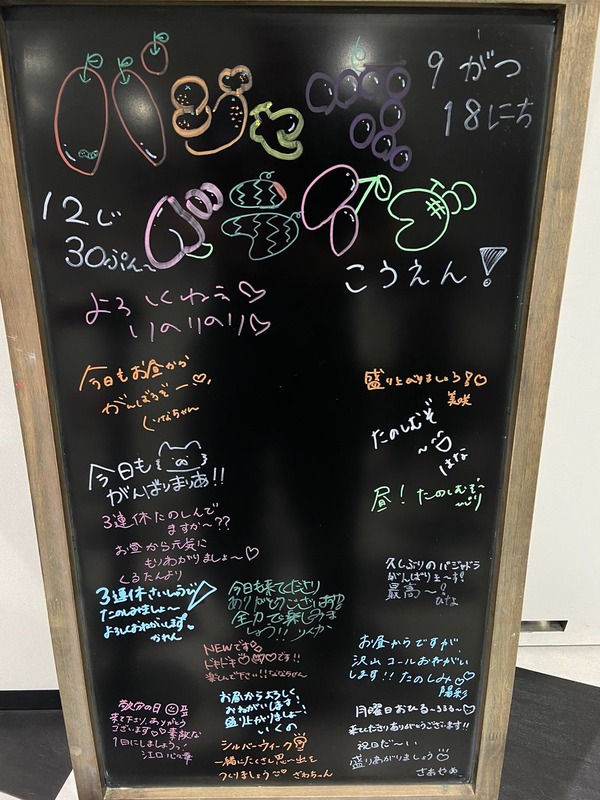 パジャマ
ドライブ
9がつ
18にち
12じ
30ぷん〜
こうえん!
よろしくねぇ♡
りのりのり♡
今日もお昼から
がんばるぞー♡
くいなちゃん
今日も
がんばりまりあ!!
3連休たのしんで
ますか〜??
お昼から元気に
もりあがりましょ〜♡
くるたんより
3連休さいしゅうび
たのしみましょ〜
よろしくおねがいします。
かれん
今日も来てくださり
ありがとうございます!!
全力で楽しみま
しょう!!りんか
NEWです
ドキドキ♡♡♡です!!
楽しんで下さい!!ななちゃん
お昼からよろしく
おねがいします!
盛り上がりましょー!
いくの
シルバーウィーク
一緒にたくさん思い出を
つくりましょう
ざわちゃん
敬老の日
来て下さりありがとう
ございます♡素敵な
1日にしましょうっ!
江口心々華
盛り上がりましょう!♡
美咲
たのしむぞ
〜♡
はな
昼!たのしむぞ〜
久しぶりのパジャドラ
がんばりょ〜ね!
最高〜!
ひな
お昼からですが、
沢山コールおねがい
します!!たのしみ
陽彩
月曜日おひる〜るるる〜♡
来てくださりありがとうございます!!
祝日だ〜い
盛りあがりましょう
さあやめ